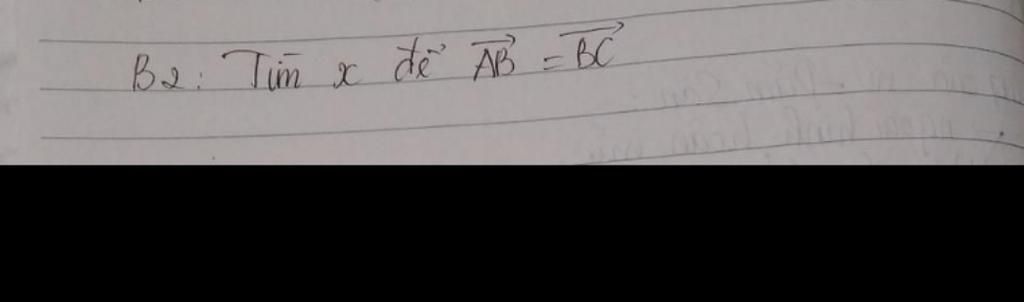 B2: Tìm x để $\overrightarrow{AB} = \overrightarrow{BC}$